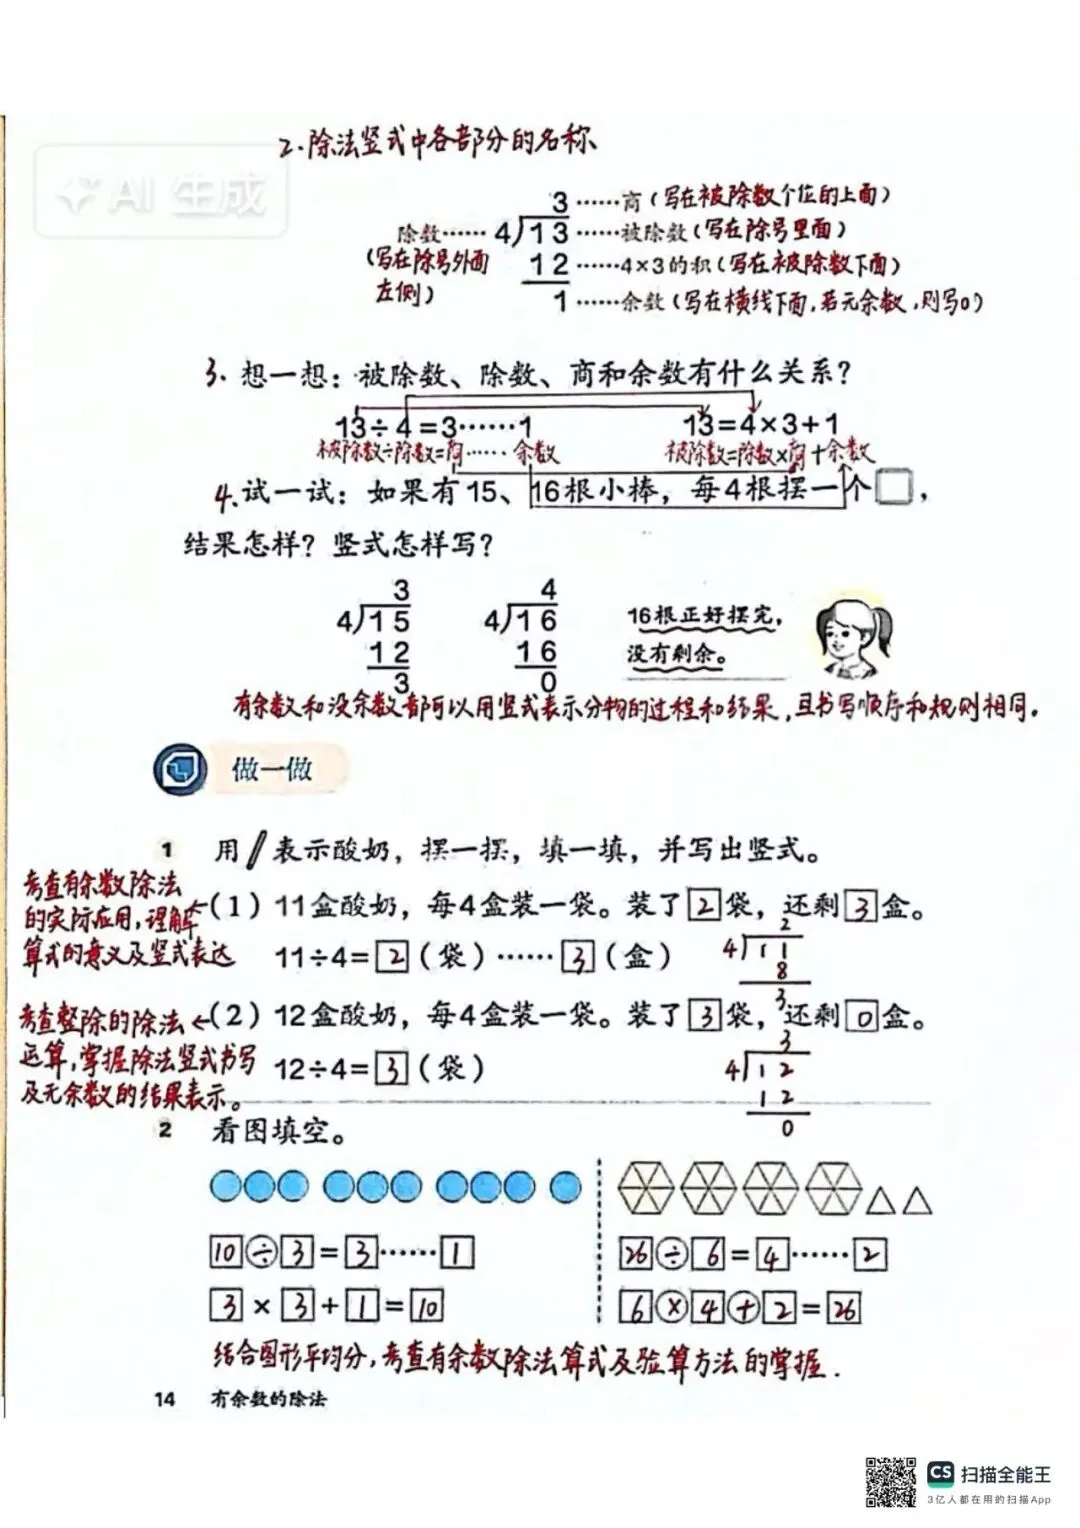 AI 生成
2.除法竖式中各部分的名称
3……商(写在被除数个位的上面)
除数……4)13……被除数(写在除号里面)
(写在除号外面左侧)
12……4×3的积(写在被除数下面)
1……余数(写在横线下面,若无余数,则写0)
3.想一想：被除数、除数、商和余数有什么关系？
13÷4=3……1 13=4×3+1
被除数÷除数=商……余数 被除数=除数×商+余数
4.试一试：如果有15、16根小棒，每4根摆一个□，
结果怎样？竖式怎样写？
3 4
4)15 4)16
12 16
3 0
16根正好摆完，
没有剩余。
有余数和没余数都可以用竖式表示分物的过程和结果,且书写顺序和规则相同.
做一做
1 用 表示酸奶，摆一摆，填一填，并写出竖式。
考查有余数除法
的实际应用,理解
算式的意义及竖式表达
(1) 11盒酸奶，每4盒装一袋。装了2袋，还剩3盒。
11÷4=2(袋)……3(盒)
2
4)11
8
3
考查整除的除法
运算,掌握除法竖式书写
及无余数的结果表示。
(2) 12盒酸奶，每4盒装一袋。装了3袋，还剩0盒。
12÷4=3(袋)
3
4)12
12
0
2 看图填空。
10÷3=3……1
3×3+1=10
26÷6=4……2
6×4+2=26
结合图形平均分,考查有余数除法算式及验算方法的掌握.
14 有余数的除法
CS 扫描全能王
3亿人都在用的扫描App